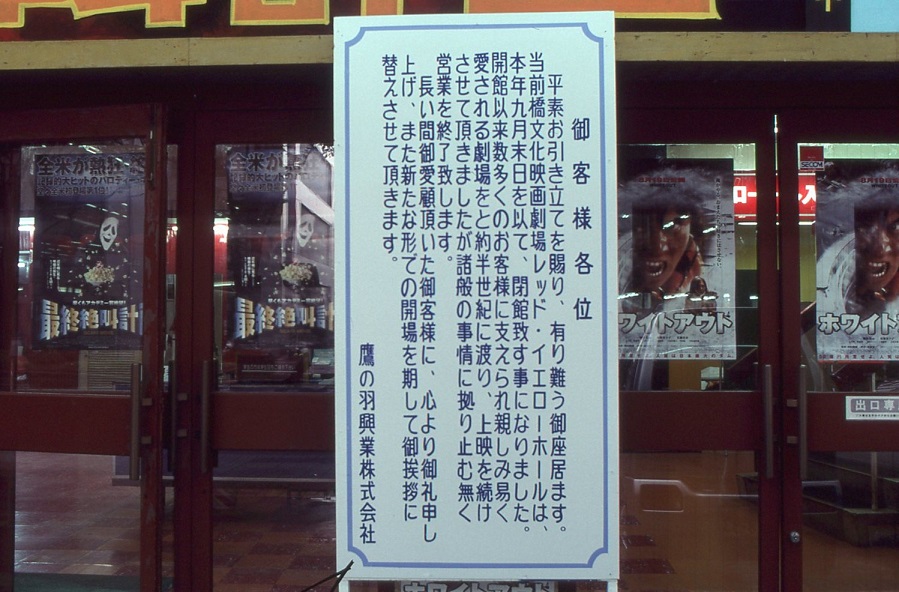 御客様各位
平素お引き立てを賜り、有り難う御座居ます。
当前橋文化映画劇場レッド・イエローホールは、
本年九月末日を以て、閉館致す事になりました。
開館以来数多くのお客様に支えられ親しみ易く
愛される劇場をと約半世紀に渡り、上映を続け
させて頂きましたが諸般の事情に拠り止む無く
営業を終了致します。
長い間御愛顧頂いた御客様に、心より御礼申し
上げ、また新たな形での開場を期して御挨拶に
替えさせて頂きます。
鷹の羽興業株式会社
全米が熱狂
最終絶叫計
全米が熱狂
最終絶叫計
ホワイトアウト
SECOM
ホワイト
出口専
ホワイトアウト